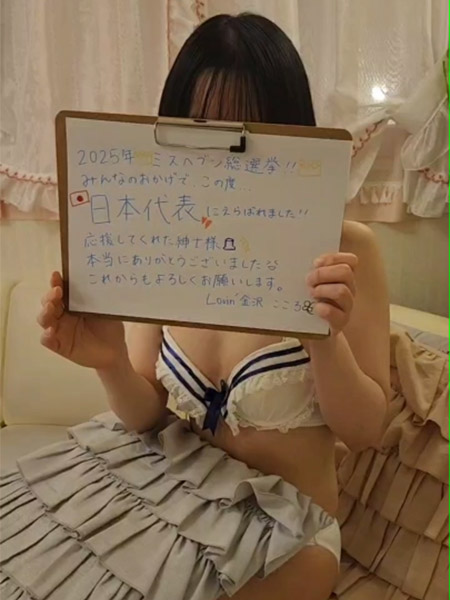 2025年ミスヘブン総選挙!!
みんなのおかげで、この度...
日本代表にえらばれました!!
応援してくれた紳士様
本当にありがとうございました
これからもよろしくお願いします。
Lovin'金沢 こころ